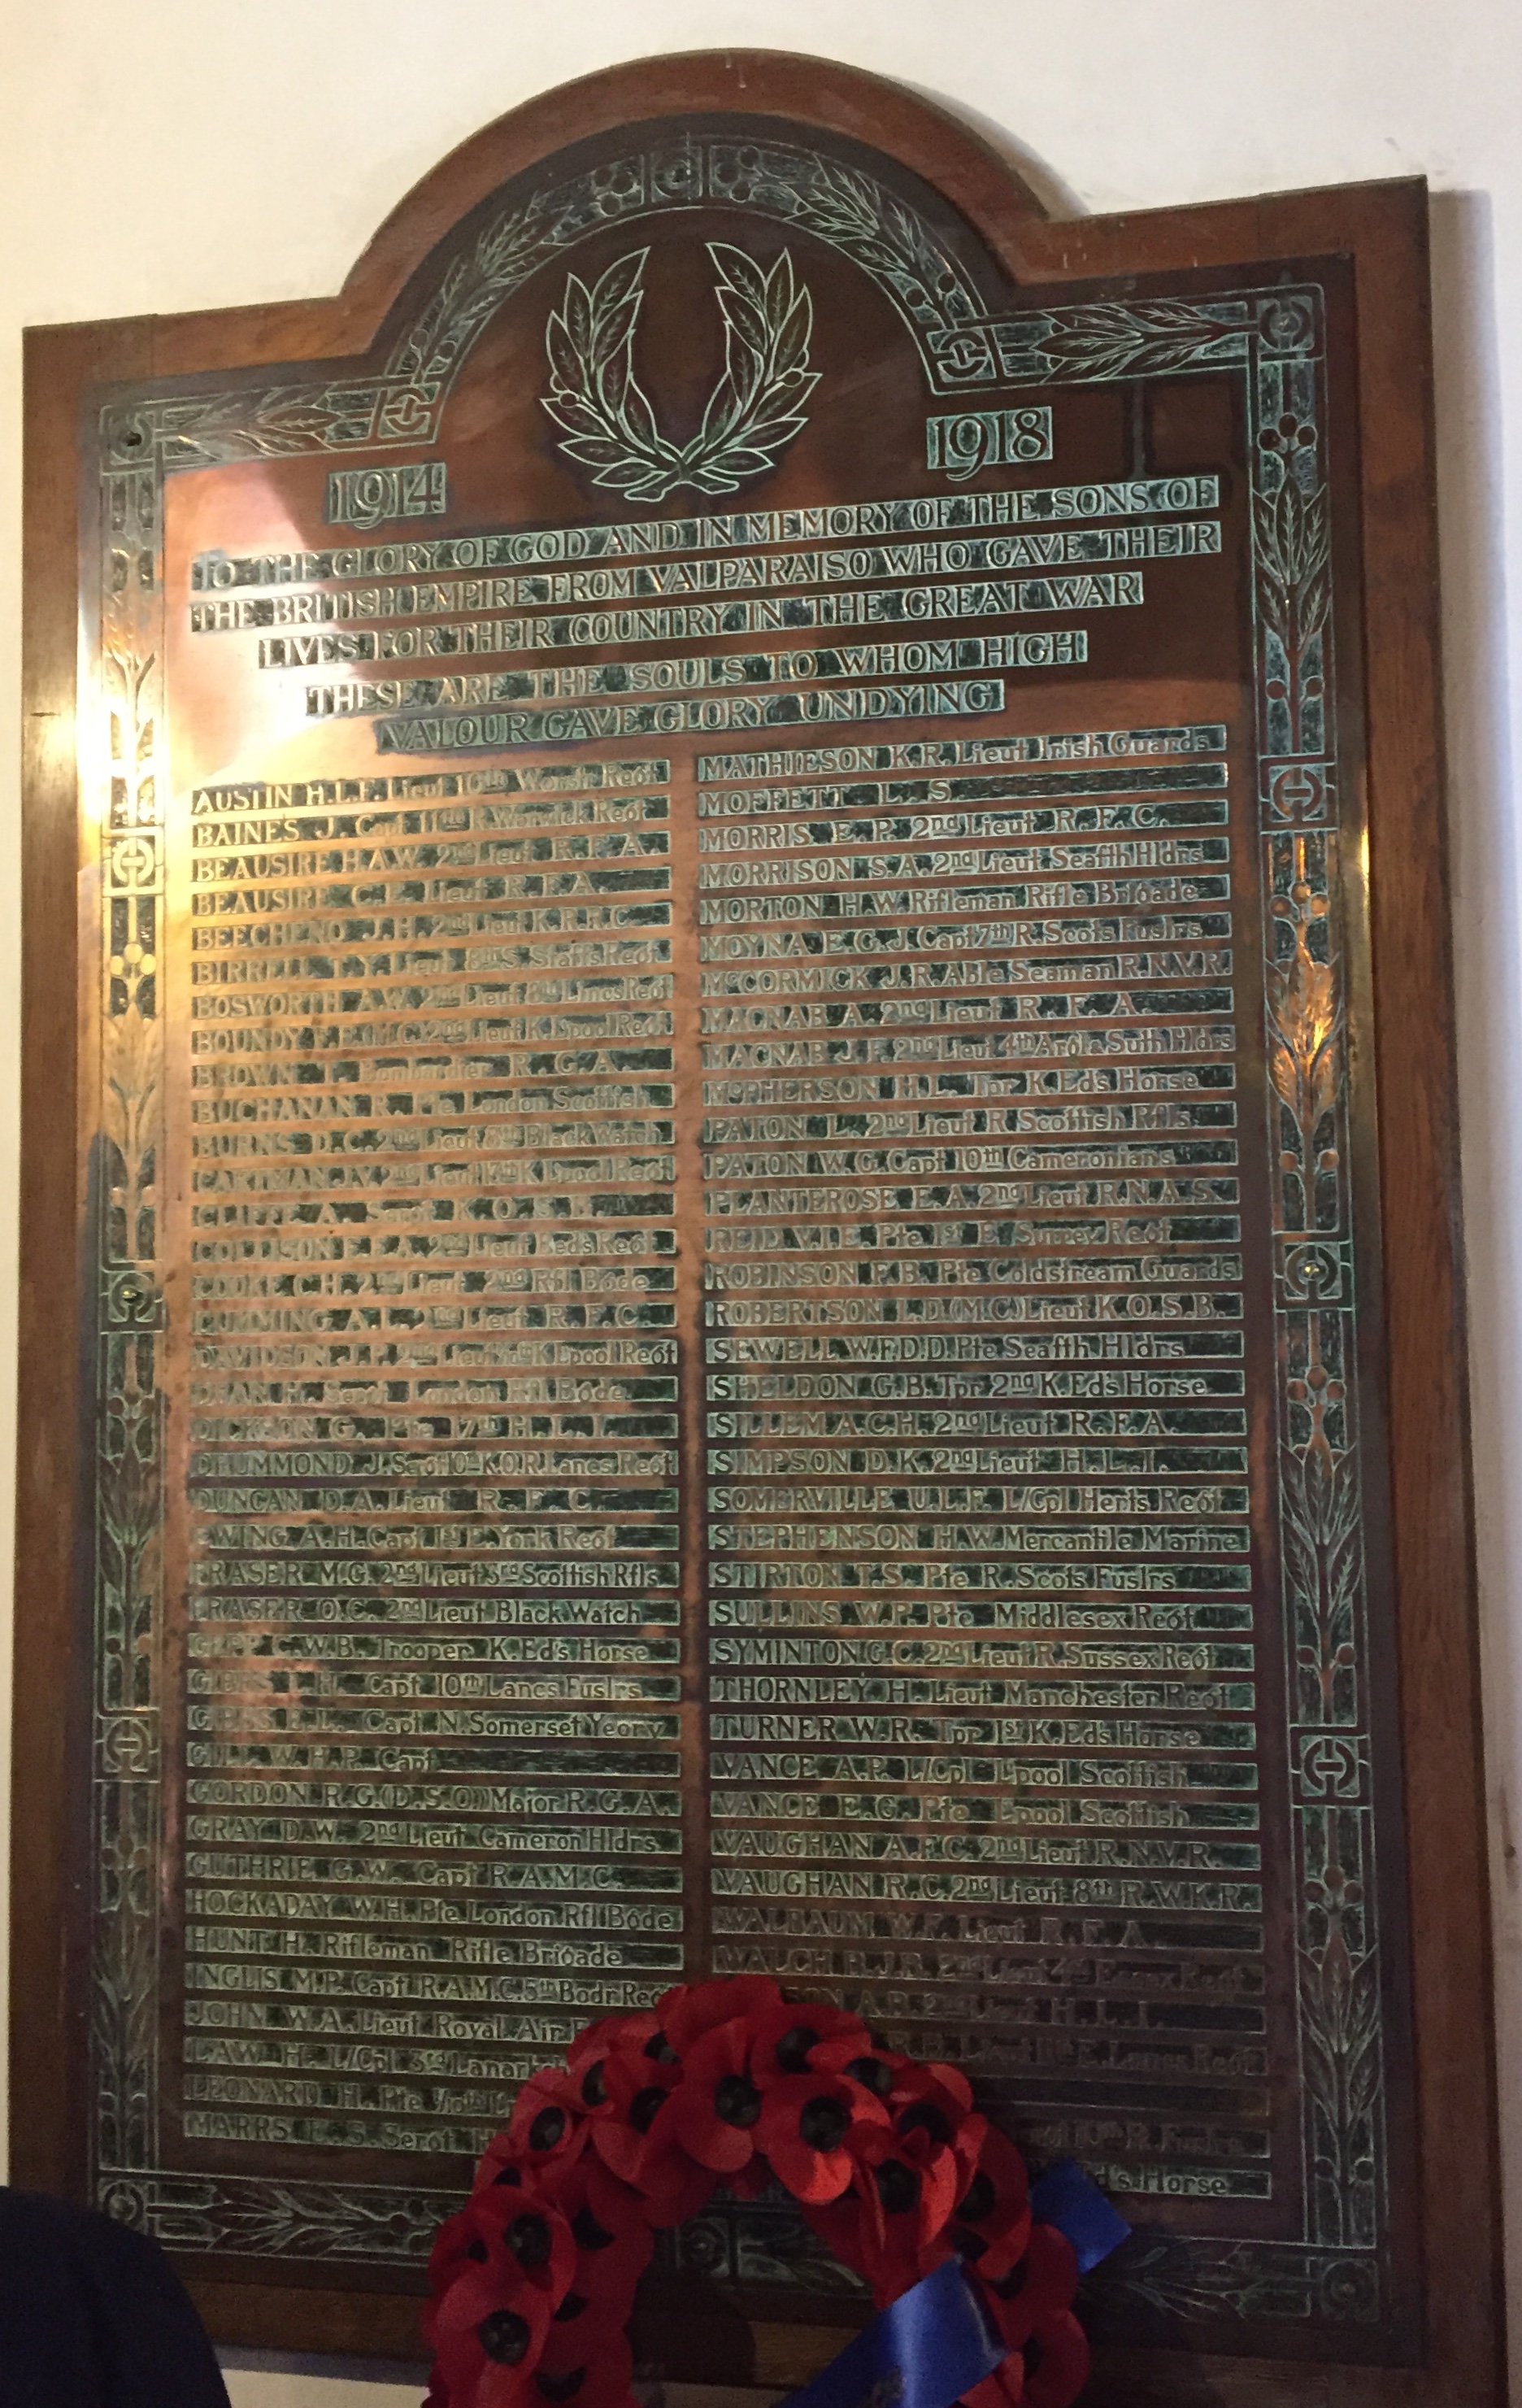 1914
1918
TO THE GLORY OF GOD AND IN MEMORY OF THE SONS OF
THE BRITISH EMPIRE FROM VALPARAISO WHO GAVE THEIR
LIVES FOR THEIR COUNTRY IN THE GREAT WAR
THESE ARE THE SOULS TO WHOM HIGH
VALOUR GAVE GLORY UNDYING
AUSTIN H.L.F. Lieut 10th Worstr Regt
BAINES J. Capt 11th R. Warwick Regt
BEAUSIRE H.A.W. 2nd Lieut R. F. A.
BEAUSIRE C.E. Lieut R. F. A.
BEECHENO J.H. 2nd Lieut
BIRRELL T.Y. Lieut 8th S. Staffs Regt
BOSWORTH A.W. 2nd Lieut 8th Lincs Regt
BOUNDY F.E. (M.C.) 2nd Lieut K. Lpool Regt
BROWN Bombardier R. G. A.
BUCHANAN R. Pte London Scottish
BURNS D.C. 2nd Lieut 8th Black Watch
CARTMAN J.V. 2nd Lieut 17th K. Lpool Regt
CLIFFE A. Sergt K. O. S. B.
COLLISON E.F.A. 2nd Lieut Beds Regt
COOKE C.H. 2nd Lieut 2nd Rfl Bgde
CUMMING A.L. 2nd Lieut R. F. C.
DAVIDSON J.F. 2nd Lieut K. Lpool Regt
DEAN H. Sergt London Rfl Bgde
DICKSON G. Pte 17th H. L. I.
DRUMMOND J. Sergt 10th K.O.R. Lancs Regt
DUNCAN D.A. Lieut R. F. C.
EWING A.H. Capt 1st E. York Regt
FRASER M.G. 2nd Lieut 3rd Scottish Rfls
FRASER O.C. 2nd Lieut Black Watch
GEPP C.W.B. Trooper K. Ed's Horse
GIBBS I.H. Capt 10th Lancs Fuslrs
GIBBS E.L. Capt N. Somerset Yeory
GILL W.H.P. Capt
GORDON R.G. (D.S.O.) Major R. G. A.
GRAY D.W. 2nd Lieut Cameron Hldrs
GUTHRIE G.W. Capt R.A.M.C.
HOCKADAY W.H. Pte London Rfl Bgde
HUNT H. Rifleman Rifle Brigade
INGLIS M.P. Capt R.A.M.C. 5th Bodr Regt
JOHN W.A. Lieut Royal Air
LAW H. L/Cpl 3rd
LEONARD H. Pte 1/10th
MARRS E.S. Sergt
MATHIESON K.R. Lieut Irish Guards
MOFFETT L. S.
MORRIS E. P. 2nd Lieut R. F. C.
MORRISON S.A. 2nd Lieut Seafth Hldrs
MORTON H.W. Rifleman Rifle Brigade
MOYNA E.G.J. Capt 7th R. Scots Fuslrs
McCORMICK J.R. Able Seaman R.N.V.R.
MACNAB A. 2nd Lieut R. F. A.
MACNAB J.F. 2nd Lieut 4th Argl & Suth Hldrs
McPHERSON H.L. Tpr K. Ed's Horse
PATON L. 2nd Lieut R Scottish Rfls
PATON W.G. Capt 10th Cameronians
PLANTEROSE E.A. 2nd Lieut R.N.A.S.
REID V.I.E. Pte 1st E. Surrey Regt
ROBINSON F.B. Pte Coldstream Guards
ROBERTSON I.D. (M.C.) Lieut K.O.S.B.
SEWELL W.F.D.D. Pte Seafth Hldrs
SHELDON G.B. Tpr 2nd K. Ed's Horse
SILLEM A.C.H. 2nd Lieut R. F. A.
SIMPSON D.K. 2nd Lieut H. L. I.
SOMERVILLE U.L.F. L/Cpl Herts Regt
STEPHENSON H.W. Mercantile Marine
STIRTON T.S. Pte R. Scots Fuslrs
SULLINS W.P. Pte Middlesex Regt
SYMINTON G.C. 2nd Lieut R. Sussex Regt
THORNLEY H. Lieut Manchester Regt
TURNER W.R. Tpr 1st K. Ed's Horse
VANCE A.P. L/Cpl Lpool Scottish
VANCE E.G. Pte Lpool Scottish
VAUGHAN A.F.C. 2nd Lieut R.N.V.R.
VAUGHAN R.C. 2nd Lieut 8th R.W.K.R.
WALBAUM W.F. Lieut R. F. A.
WAUGH B.J.R. 2nd Lieut Essex Regt
A.R. 2nd Lieut H. L. I.
Lieut E. Lancs Regt
R. Fuslrs
Ed's Horse